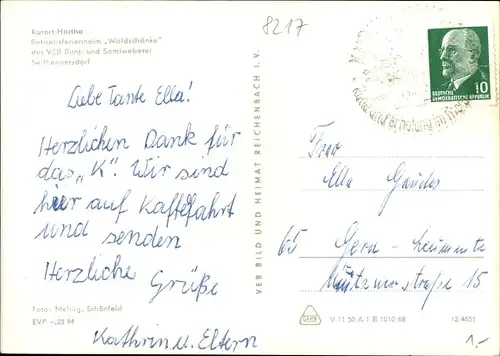 Kurort Hartha
Betriebsferienheim „Waldschänke"
des VEB Bunt- und Samtweberei
Seifhennersdorf
8217
Liebe Tante Ella!
Herzlichen Dank für
das „K". Wir sind
hier auf Kaffefahrt
und senden
Herzliche Grüße
Kathrin u. Eltern
Foto: Mehlig, Schönfeld
EVP –,25 M
VEB BILD UND HEIMAT REICHENBACH I. V.
DEUTSCHE
DEMOKRATISCHE REPUBLIK
10
und Erholung im
Frau
Ella
65 Gera-
straße 15
V 11 50 A 1 B 1010/68
12/4651
1.-